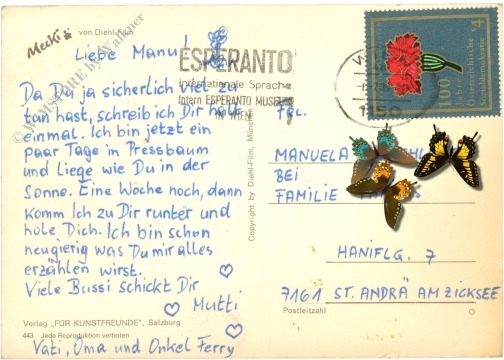 von Diehl-Film
Mecki
Liebe Manu!
Da Du ja sicherlich viel zu
tun hast, schreib ich Dir halt
einmal. Ich bin jetzt ein
paar Tage in Pressbaum
und liege wie Du in der
Sonne. Eine Woche noch, dann
komm ich zu Dir runter und
hole Dich. Ich bin schon
neugierig was Du mir alles
erzählen wirst.
Viele Bussi schickt Dir
Mutti
Verlag „FÜR KUNSTFREUNDE", Salzburg
443 Jede Reproduktion verboten
Vati, Oma und Onkel Ferry
Copyright by Diehl-Film, München
ESPERANTO
internationale Sprache
Intern ESPERANTO MUSEUM
IN WIEN
1150
S4
100 Jahre
Österreichische
Sozialdemokratie
FRL.
MANUELA
BEI
FAMILIE
HANIFLG. 7
7161 ST. ANDRÄ AM ZICKSEE
Postleitzahl